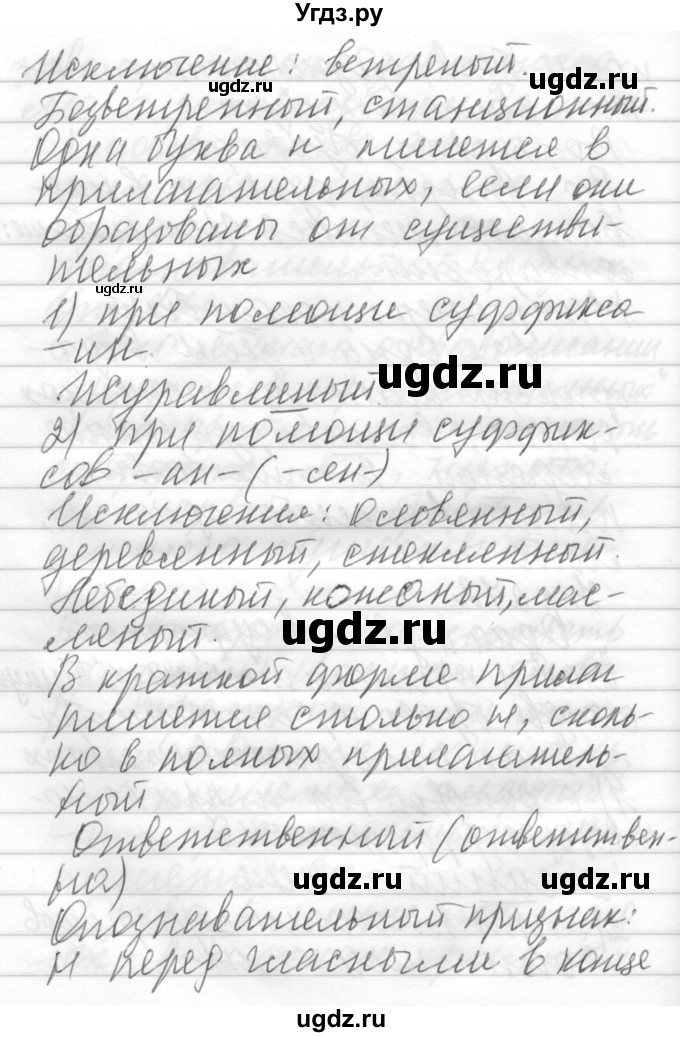 Угдз.ру
Исключение: ветреный.
ugdz.ru
Безветренный, станционный.
Одна буква н пишется в
прилагательных, если они
образованы от существи-
тельных
ugdz.ru
1) при помощи суффикса
-ин.
ugdz.ru
Журавлиный.
2) при помощи суффик-
сов -ан- (-ян-)
Исключения: Оловянный,
деревянный, стеклянный.
Лебединый, кожаный, мас-
ляный.
ugdz.ru
В краткой форме прилаг
пишется столько н, сколь-
ко в полных прилагатель-
ный
Ответственный (ответствен-
на)
ugdz.ru ugdz.ru
Опознавательный признак:
н перед гласными в конце
ugdz.ru